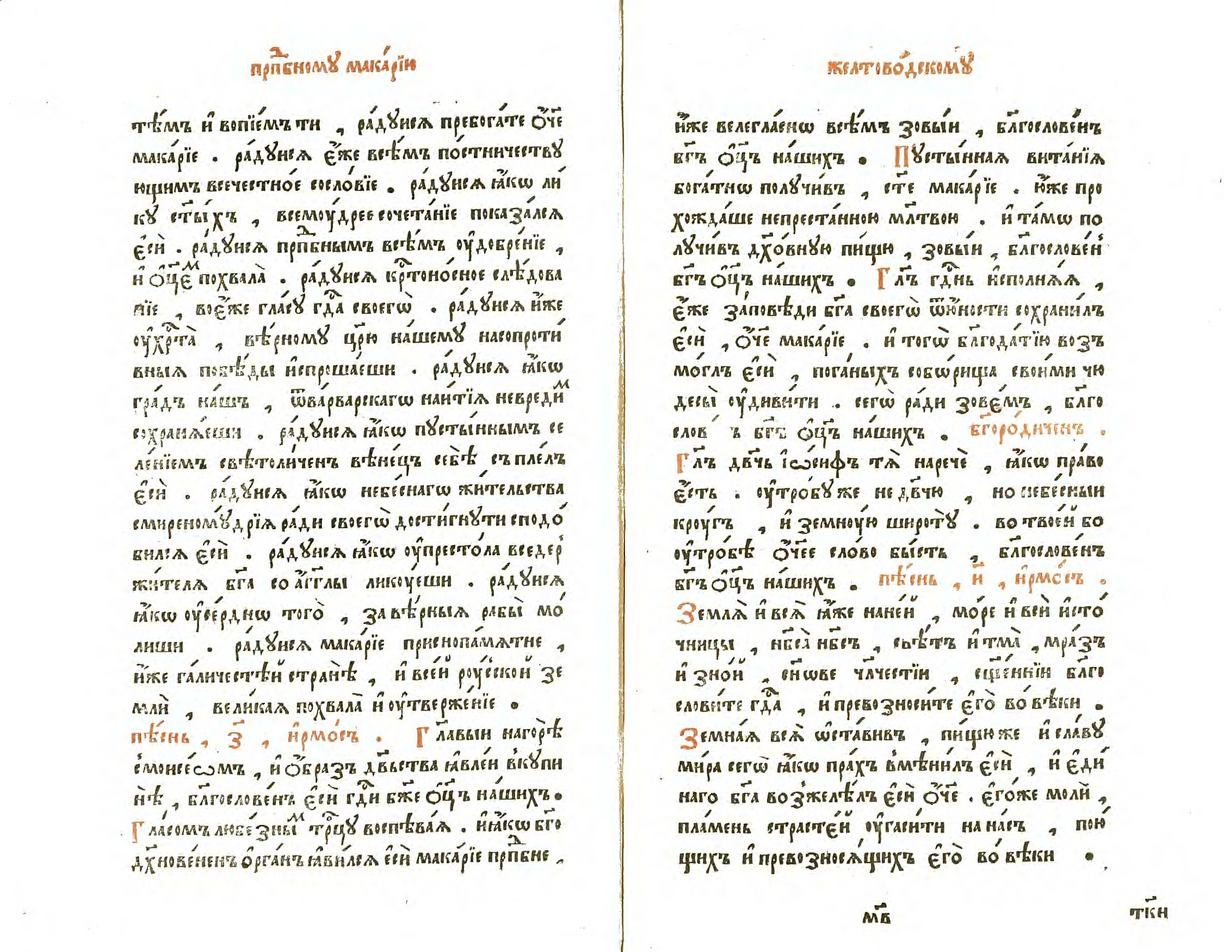 прпⷣбному мака́рїю
тѣ́мъ и҆ вопїе́мъ ти , ра́дꙋисѧ пребога́те ѻ҆́ч҃е
мака́рїе . ра́дꙋисѧ є҆́же всѣ́мъ по́стничествꙋ
ющимъ всечестно́е сосло́вїе . ра́дꙋисѧ ꙗ҆́кѡ ли
кꙋ̀ ст҃ы́хъ , всемоу́дрее сочета́нїе показа́лсѧ
є҆сѝ . ра́дꙋисѧ прпⷣбнымъ всѣ́мъ оу҆добре́нїе ,
и҆ ѻ҆ц҃е́ⷨ похвала̀ . ра́дꙋисѧ крⷭ҇тоно́сное слѣ́дова
нїе , воє҆́же гла́сꙋ гдⷭ҇а своегѡ̀ . ра́дꙋисѧ и҆́же
оу҆хрⷭ҇та̀ , вѣ́рномꙋ цр҃ю̀ на́шемꙋ насопроти́
вныѧ побѣ́ды и҆спроша́еши . ра́дꙋисѧ ꙗ҆́кѡ
гра́дъ на́шъ , ѿва́рварскагѡ наи́тїѧ невреди́ⷨ
сохранѧ́еши . ра́дꙋисѧ ꙗ҆́кѡ пꙋсты́ннымъ се
ле́нїемъ свѣ́толиченъ вѣне́цъ себѣ̀ съпле́лъ
є҆сѝ . ра́дꙋисѧ ꙗ҆́кѡ небе́снагѡ жи́тельства
смиреномꙋ́дрїѧ ра́ди своегѡ̀ дости́гнꙋти сподо́
билсѧ є҆сѝ . ра́дꙋисѧ ꙗ҆́кѡ оу҆престо́ла вседер
жи́телѧ бг҃а со а҆́гг҃лы ликоу́еши . ра́дꙋисѧ
ꙗ҆́кѡ оу҆се́рднѡ того̀ , за вѣ́рныѧ рабы̀ мо́
лиши . ра́дꙋисѧ мака́рїе приснопа́мѧтне ,
и҆́же га́личестѣй странѣ̀ , и҆ все́й роу́сской зе
млѝ , вели́каѧ похвала̀ и҆ оу҆твержє́нїе .
пѣ́снь , з҃ , і҆рмо́съ . Гла́выи нагорѣ̀
с̾моисе́ѡмъ , и҆ ѻ҆́бразъ дв҃ьства ꙗ҆вле́и в̾кꙋпи
нѣ̀ , бл҃гослове́нъ є҆сѝ гдⷭ҇и бж҃е ѻ҆ц҃ъ на́шихъ .
Гла́сомъ любе́зныⷨ трⷪ҇цꙋ воспѣва́ѧ . и҆ꙗ҆́кѡ бг҃о
дх҃нове́ненъ ѻ҆рга́нъ ꙗ҆ви́лсѧ є҆сѝ мака́рїе прпⷣбне ,
желтово́дскомꙋ
и҆́же велегла́снѡ всѣ́мъ зовы́и , бл҃гослове́нъ
бг҃ъ ѻ҆ц҃ъ на́шихъ . Пꙋсты́ннаѧ вита́нїѧ
бога́тнѡ полꙋчи́въ , ст҃е мака́рїе . ю҆́же про
хожда́ше непреста́нною мл҃твою . и҆ та́мѡ по
лꙋчи́въ дх҃о́внꙋю пи́щꙋ , зовы́и , бл҃гослове́н
бг҃ъ ѻ҆ц҃ъ на́шихъ . Гл҃ъ гдⷭ҇нь и҆сполнѧ́ѧ ,
є҆́же за́повѣди бг҃а своегѡ̀ ѿю҆́ности сохрани́лъ
є҆сѝ , ѻ҆́ч҃е мака́рїе . и҆ тогѡ̀ бл҃года́тїю возъ
мо́глъ є҆сѝ , пога́ныхъ собѡ́рища свои́ми чю
десы̀ оу҆диви́ти . сегѡ̀ ра́ди зове́мъ , бл҃го
слов ъ бг҃ъ ѻ҆ц҃ъ на́шихъ . бг҃оро́диченъ .
Гл҃ъ дв҃чь і҆ѡ́сифъ тѧ̀ наречѐ , ꙗ҆́кѡ пра́во
є҆́сть . оу҆тро́бꙋ же не дв҃чю , но небе́сныи
кроу́гъ , и҆ земноу́ю широтꙋ̀ . во твое́й бо
оу҆тро́бѣ ѻ҆́ч҃ее сло́во бы́сть , бл҃гослове́нъ
бг҃ъ ѻ҆ц҃ъ на́шихъ . пѣ́снь , и҃ , і҆рмо́съ .
Землѧ̀ и҆ всѧ̀ ꙗ҆́же нане́й , мо́ре и҆ вси́ и҆сто́
чницы , нб҃са̀ нб҃съ , свѣ́тъ и҆ тма̀ , мра́зъ
и҆ зно́й , сн҃ове чл҃честїи , сщ҃е́ннїи бл҃го
слови́те гдⷭ҇а , и҆ превозноси́те є҆го̀ во́ вѣки .
Земна́ѧ всѧ̀ ѡ҆ста́вивъ , пи́щꙋ же и҆ сла́вꙋ
ми́ра сегѡ̀ ꙗ҆́кѡ пра́хъ в̾мѣни́лъ є҆сѝ , и҆ є҆ди́
наго бг҃а возжелѣ́лъ є҆сѝ ѻ҆́ч҃е . є҆го́же молѝ ,
пла́мень страсте́й оу҆гаси́ти на на́съ , пою́
щихъ и҆ превозносѧ́щихъ є҆го̀ во́ вѣки .
мв҃
тк҃и